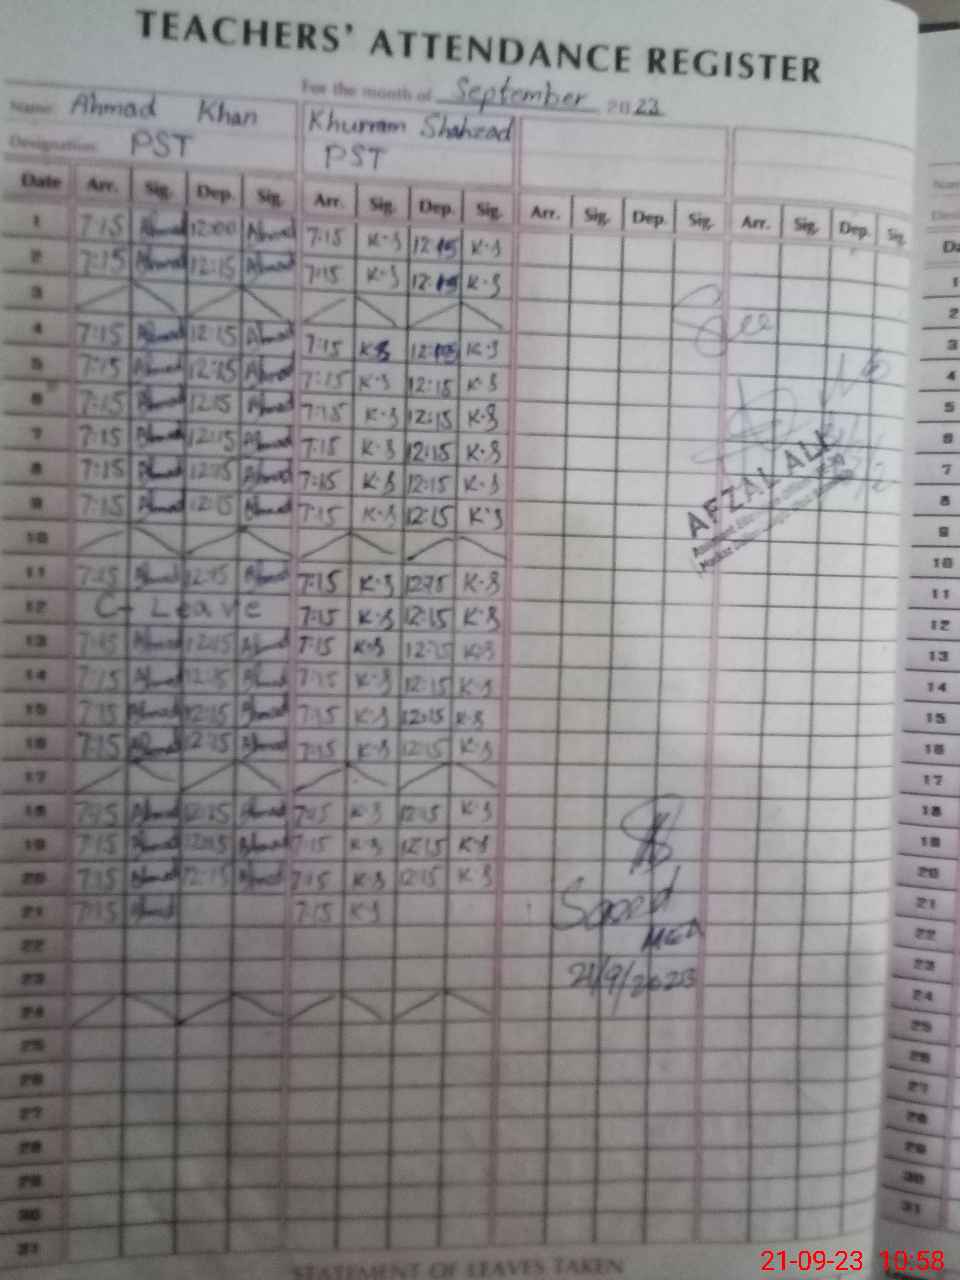 TEACHERS' ATTENDANCE REGISTER
For the month of September 2023
Name Ahmad Khan Khurram Shahzad
Designation PST PST
Date Arr. Sig. Dep. Sig. Arr. Sig. Dep. Sig. Arr. Sig. Dep. Sig. Arr. Sig. Dep. Sig.
1 7:15 Ahmad 12:00 Ahmad 7:15 K-S 12:15 K-S
2 7:15 Ahmad 12:15 Ahmad 7:15 K-S 12:15 K-S
3
4 7:15 Ahmad 12:15 Ahmad 7:15 K-S 12:15 K-S
5 7:15 Ahmad 12:15 Ahmad 7:15 K-S 12:15 K-S
6 7:15 Ahmad 12:15 Ahmad 7:15 K-S 12:15 K-S
7 7:15 Ahmad 12:15 Ahmad 7:15 K-S 12:15 K-S
8 7:15 Ahmad 12:15 Ahmad 7:15 K-S 12:15 K-S
9 7:15 Ahmad 12:15 Ahmad 7:15 K-S 12:15 K-S
AFZAL ALI
10
11 7:15 Ahmad 12:15 Ahmad 7:15 K-S 12:15 K-S
12 C-Leave 7:15 K-S 12:15 K-S
13 7:15 Ahmad 12:15 Ahmad 7:15 K-S 12:15 K-S
14 7:15 Ahmad 12:15 Ahmad 7:15 K-S 12:15 K-S
15 7:15 Ahmad 12:15 Ahmad 7:15 K-S 12:15 K-S
16 7:15 Ahmad 12:15 Ahmad 7:15 K-S 12:15 K-S
17
18 7:15 Ahmad 12:15 Ahmad 7:15 K-S 12:15 K-S
19 7:15 Ahmad 12:15 Ahmad 7:15 K-S 12:15 K-S
20 7:15 Ahmad 12:15 Ahmad 7:15 K-S 12:15 K-S
21 7:15 Ahmad 7:15 K-S
Saeed
22
MEA
23
21/9/2023
24
25
26
27
28
29
30
31
STATEMENT OF LEAVES TAKEN
1
2
3
4
5
6
7
8
9
10
11
12
13
14
15
16
17
18
19
20
21
22
23
24
25
26
27
28
29
30
31
21-09-23 10:58